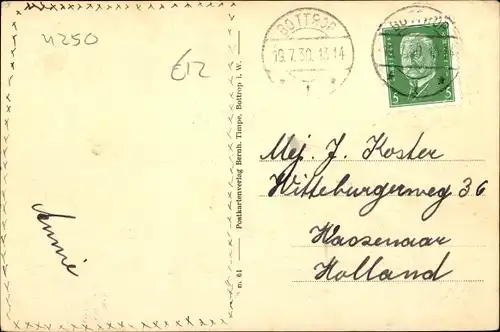 4250
E12
BOTTROP
19.7.30.13-14
BOTTROP
5 5
Mej. J. Koster
Witteburgerweg 36
Wassenaar
Holland
Postkartenverlag Bernh. Timpe, Bottrop i. W.
m. 61
Annie